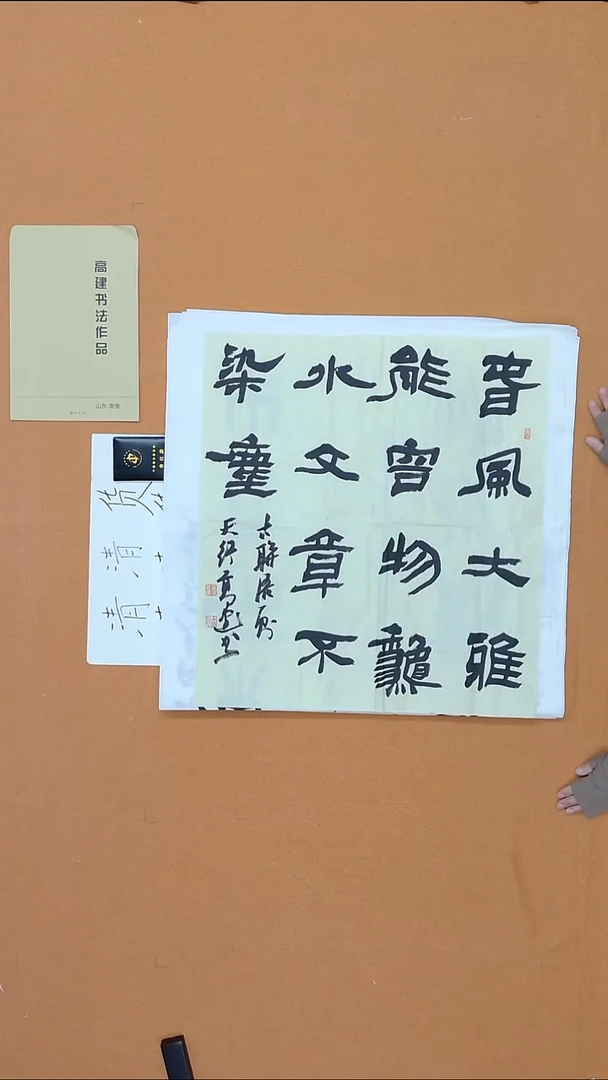 高建书法作品
山东 泰安
春風大雅
能容物龝
水文章不
染塵
古聯
高建书
清 清